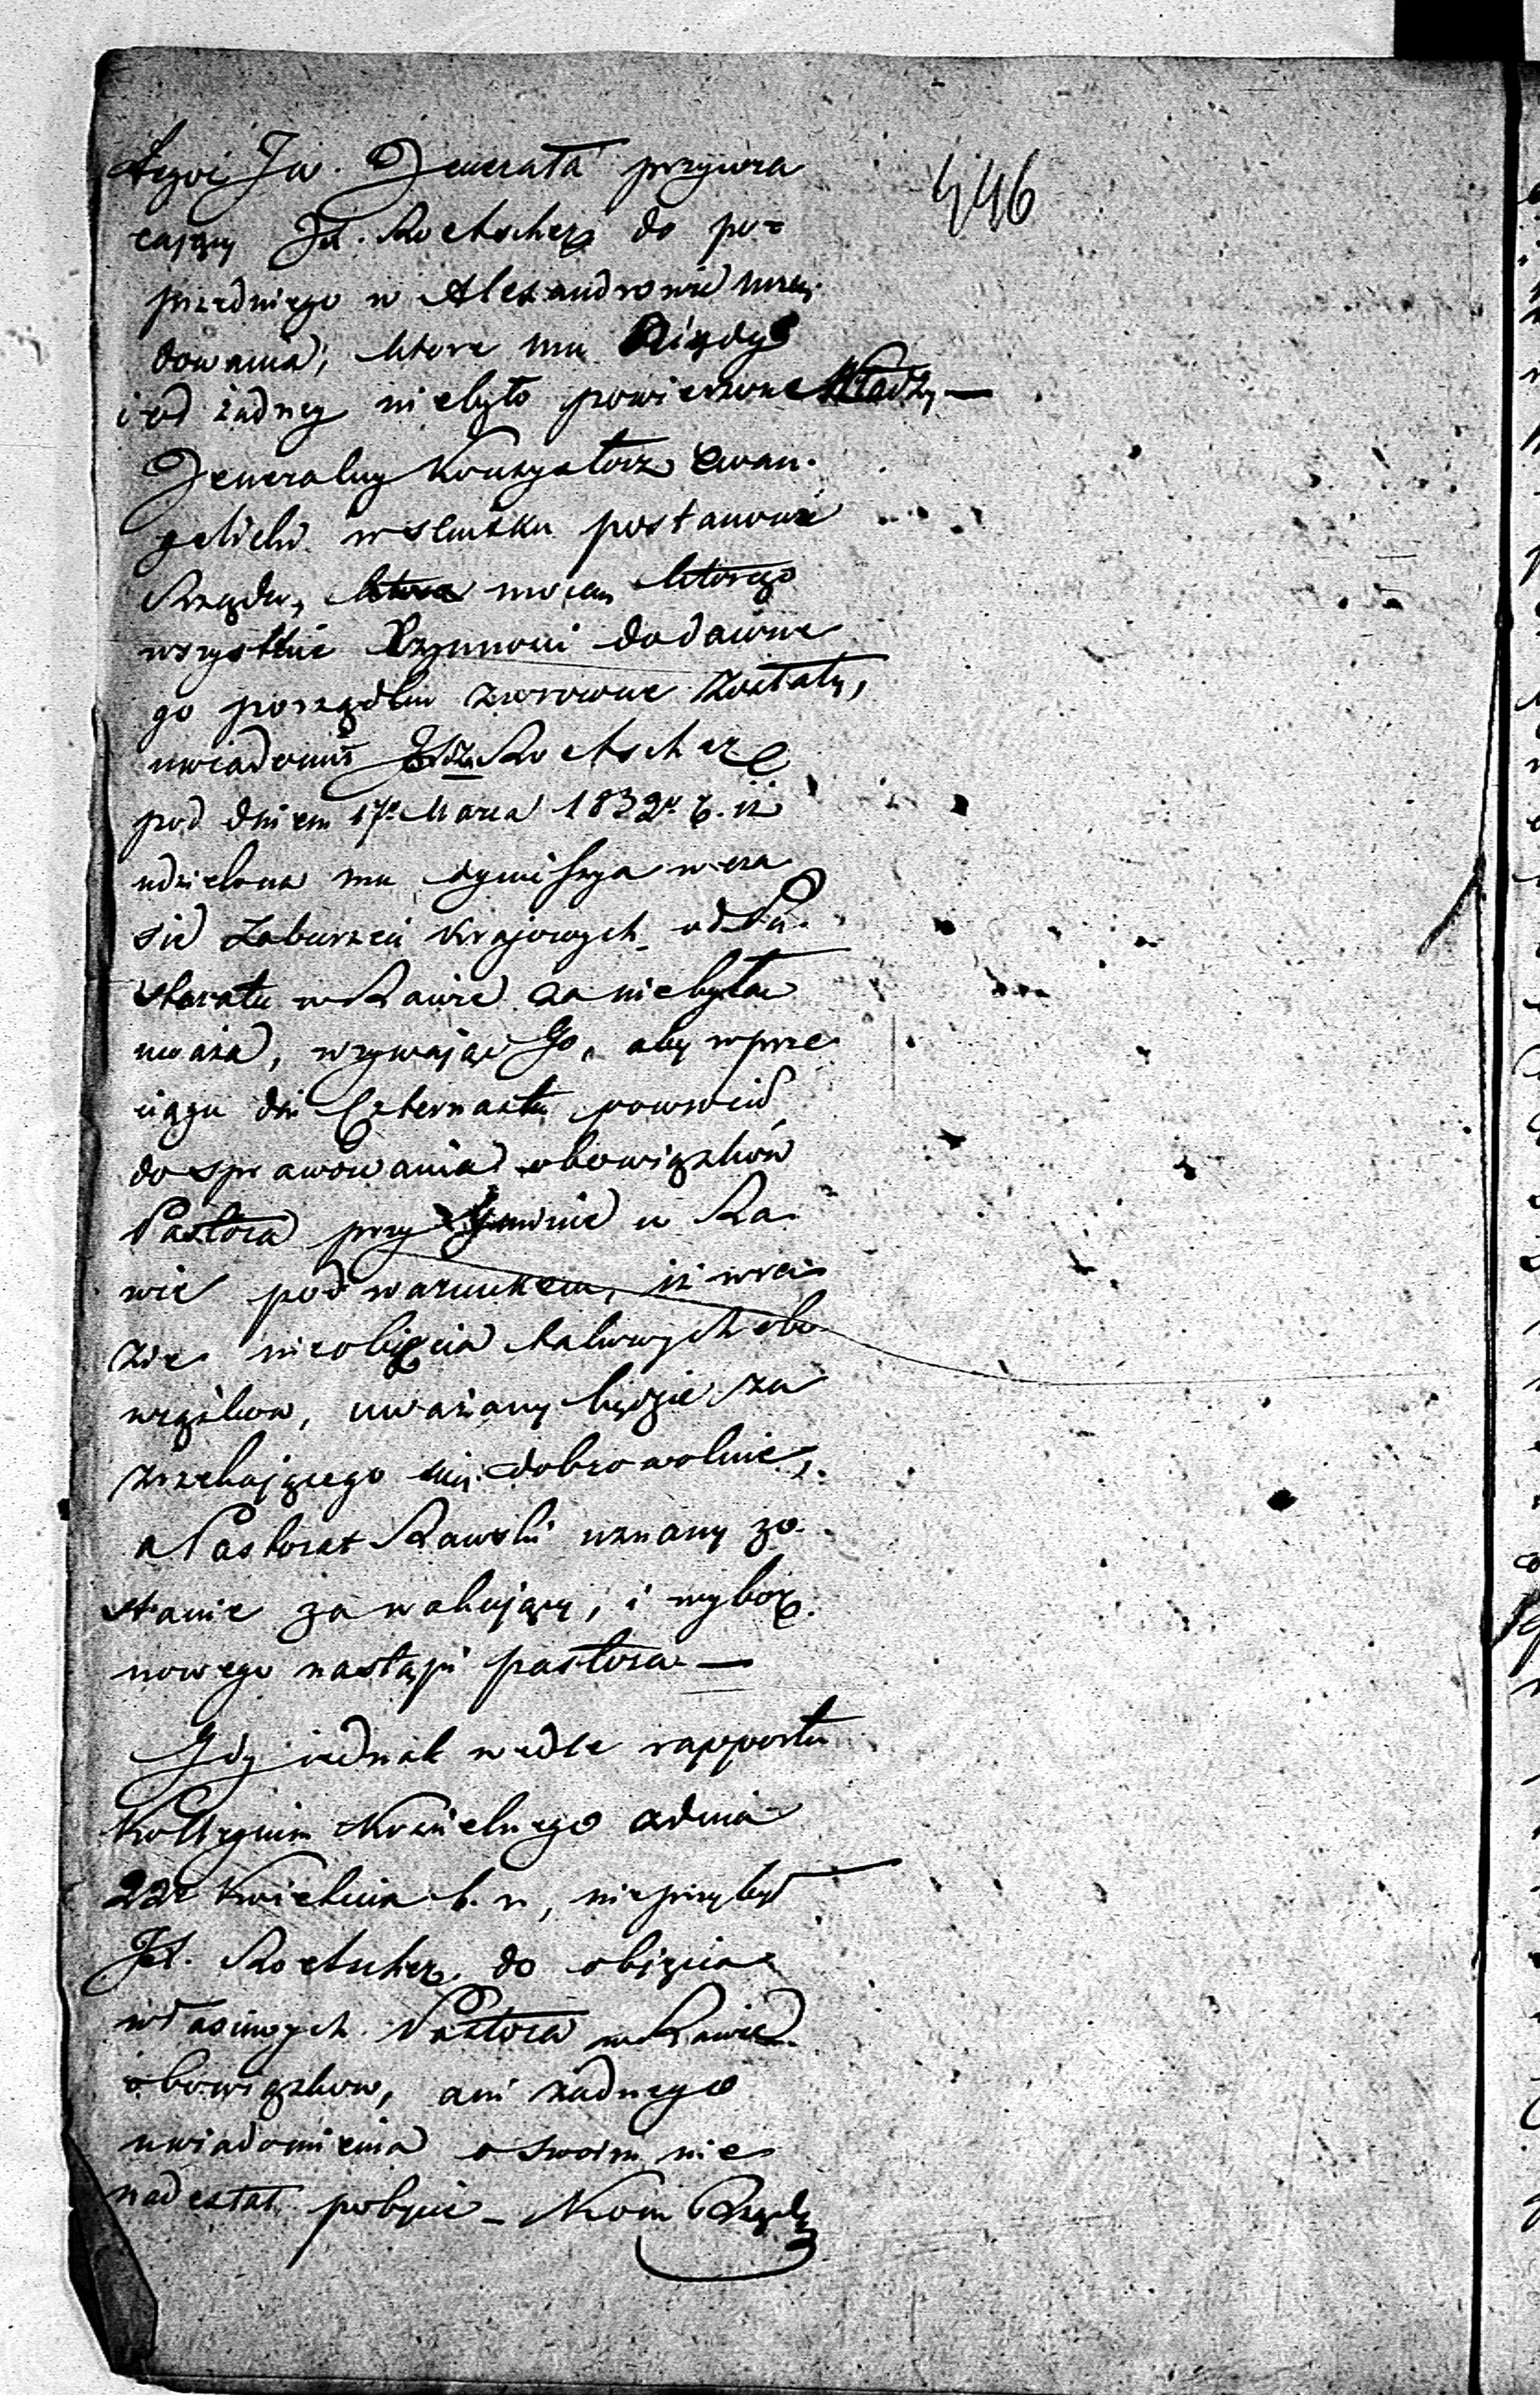 446
tegoż Jw. Jenerała przywra
cający JX. Roetscher do po=
przedniego w Alexandrowie urzę
dowania, które mu nigdy
i od żadney niebyło powierzone Władzy, —
Jeneralny Konsystorz Ewan.
gelicki w skutku postanowień
Rządu, mocą którego
wszystkie Czynności do dawne
go porządku zwrocone zostały,
uwiadomił Roetscher
pod dniem 17. Marca 1832 r. b. iż
udzielona mu dymissya w cza
sie zaburzeń krajowych od Pa.
storatu w Rawie za niebyłą
uważa, wzywając Go, aby w prze
ciągu dni Czternastu powrócił
do sprawowania obowiązków
Pastora przy Gminie w Ra
wie pod warunkem, iż w ra
zie nieobjęcia takowych obo
wiązków, uważany będzie za
zrzekającego się dobrowolnie,
a Pastorat Rawski uznany zo
stanie za wakujący, i wybór
nowego nastąpi pastora —
Gdy jednak wedle rapportu
Kollegium Kościelnego z dnia
22 Kwietnia b. r, nieprzybył
JX. Roetscher do objęcia
własciwych Pastora w Rawie
obowiązkow, ani żadnego
uwiadomienia o swoim nie
nadesłał pobycie — Kom Rządz